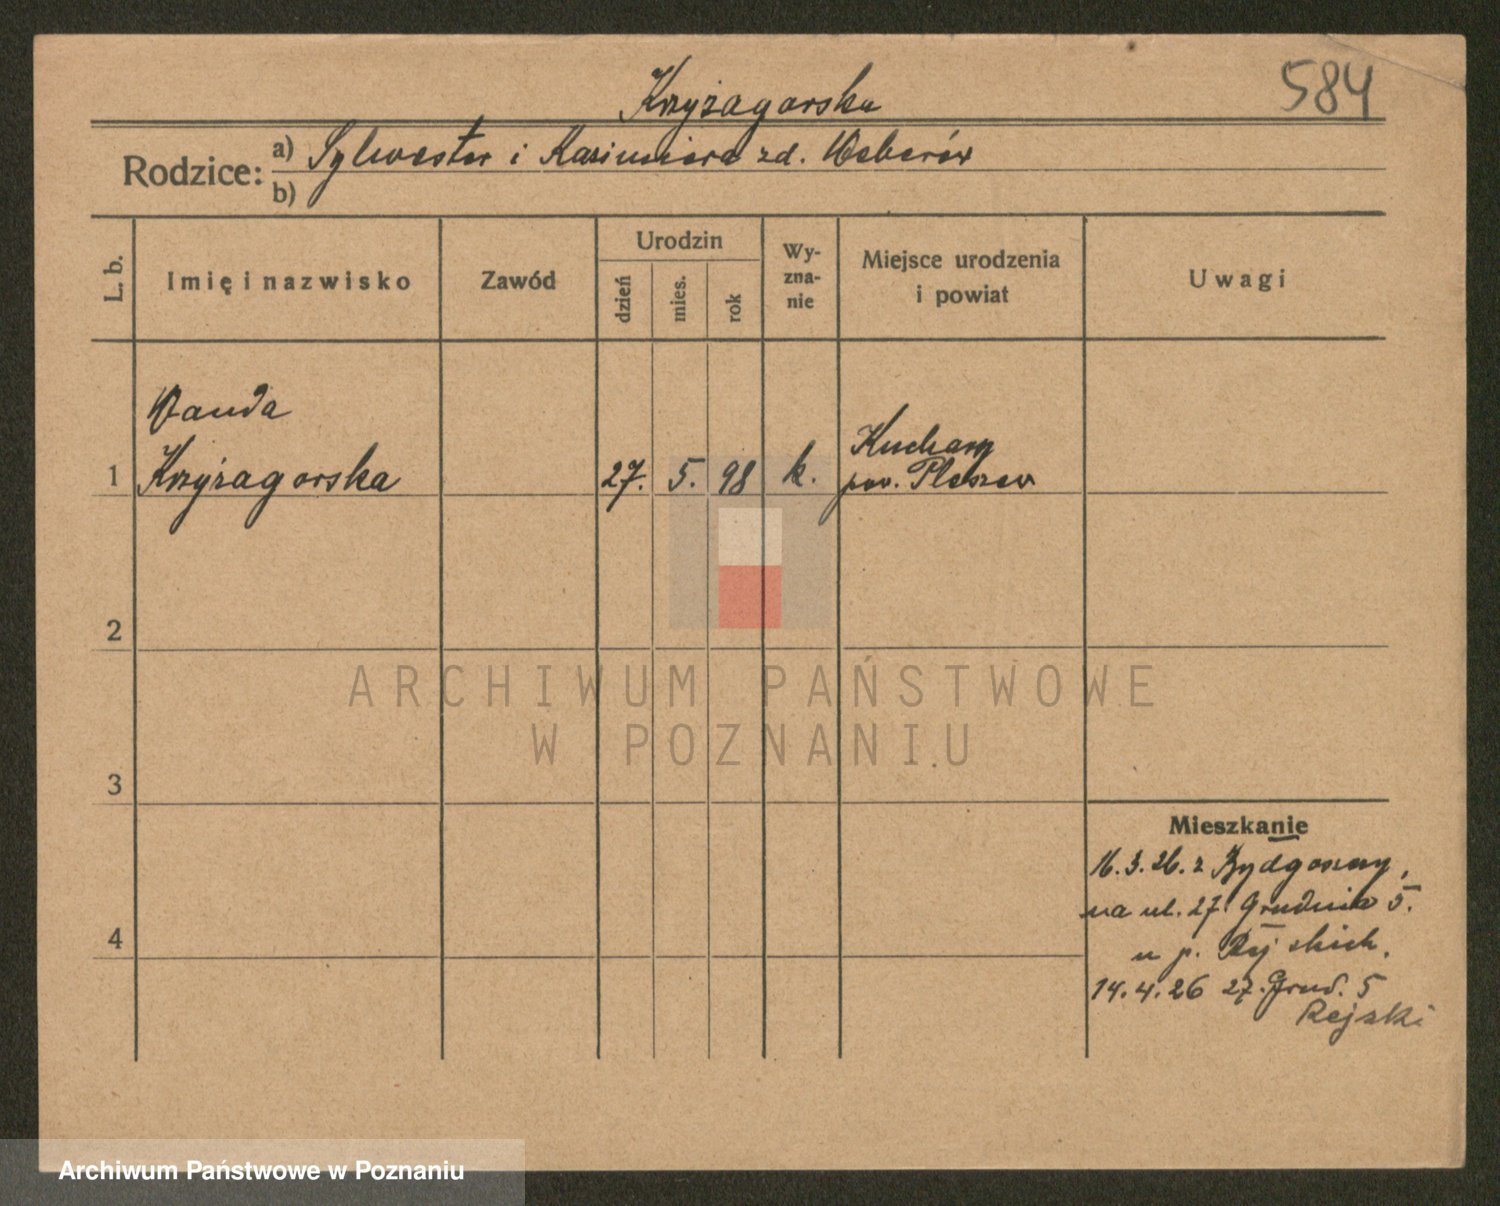 584
Krzyżagorska
Rodzice: a) Sylwester i Kazimiera zd. Weberów
b)
L. b.
Imię i nazwisko
Zawód
Urodzin
dzień
mies.
rok
Wy-
zna-
nie
Miejsce urodzenia
i powiat
Uwagi
Wanda
1 Krzyżagorska 27. 5. 98 k. Kuchary
pow. Pleszew
2
3
4
Mieszkanie
16.3.26. z Bydgoszczy,
na ul. 27 Grudnia 5.
u p. Rejskich.
14.4.26 27. Grud. 5
Rejski
ARCHIWUM PAŃSTWOWE
W POZNANIU
Archiwum Państwowe w Poznaniu